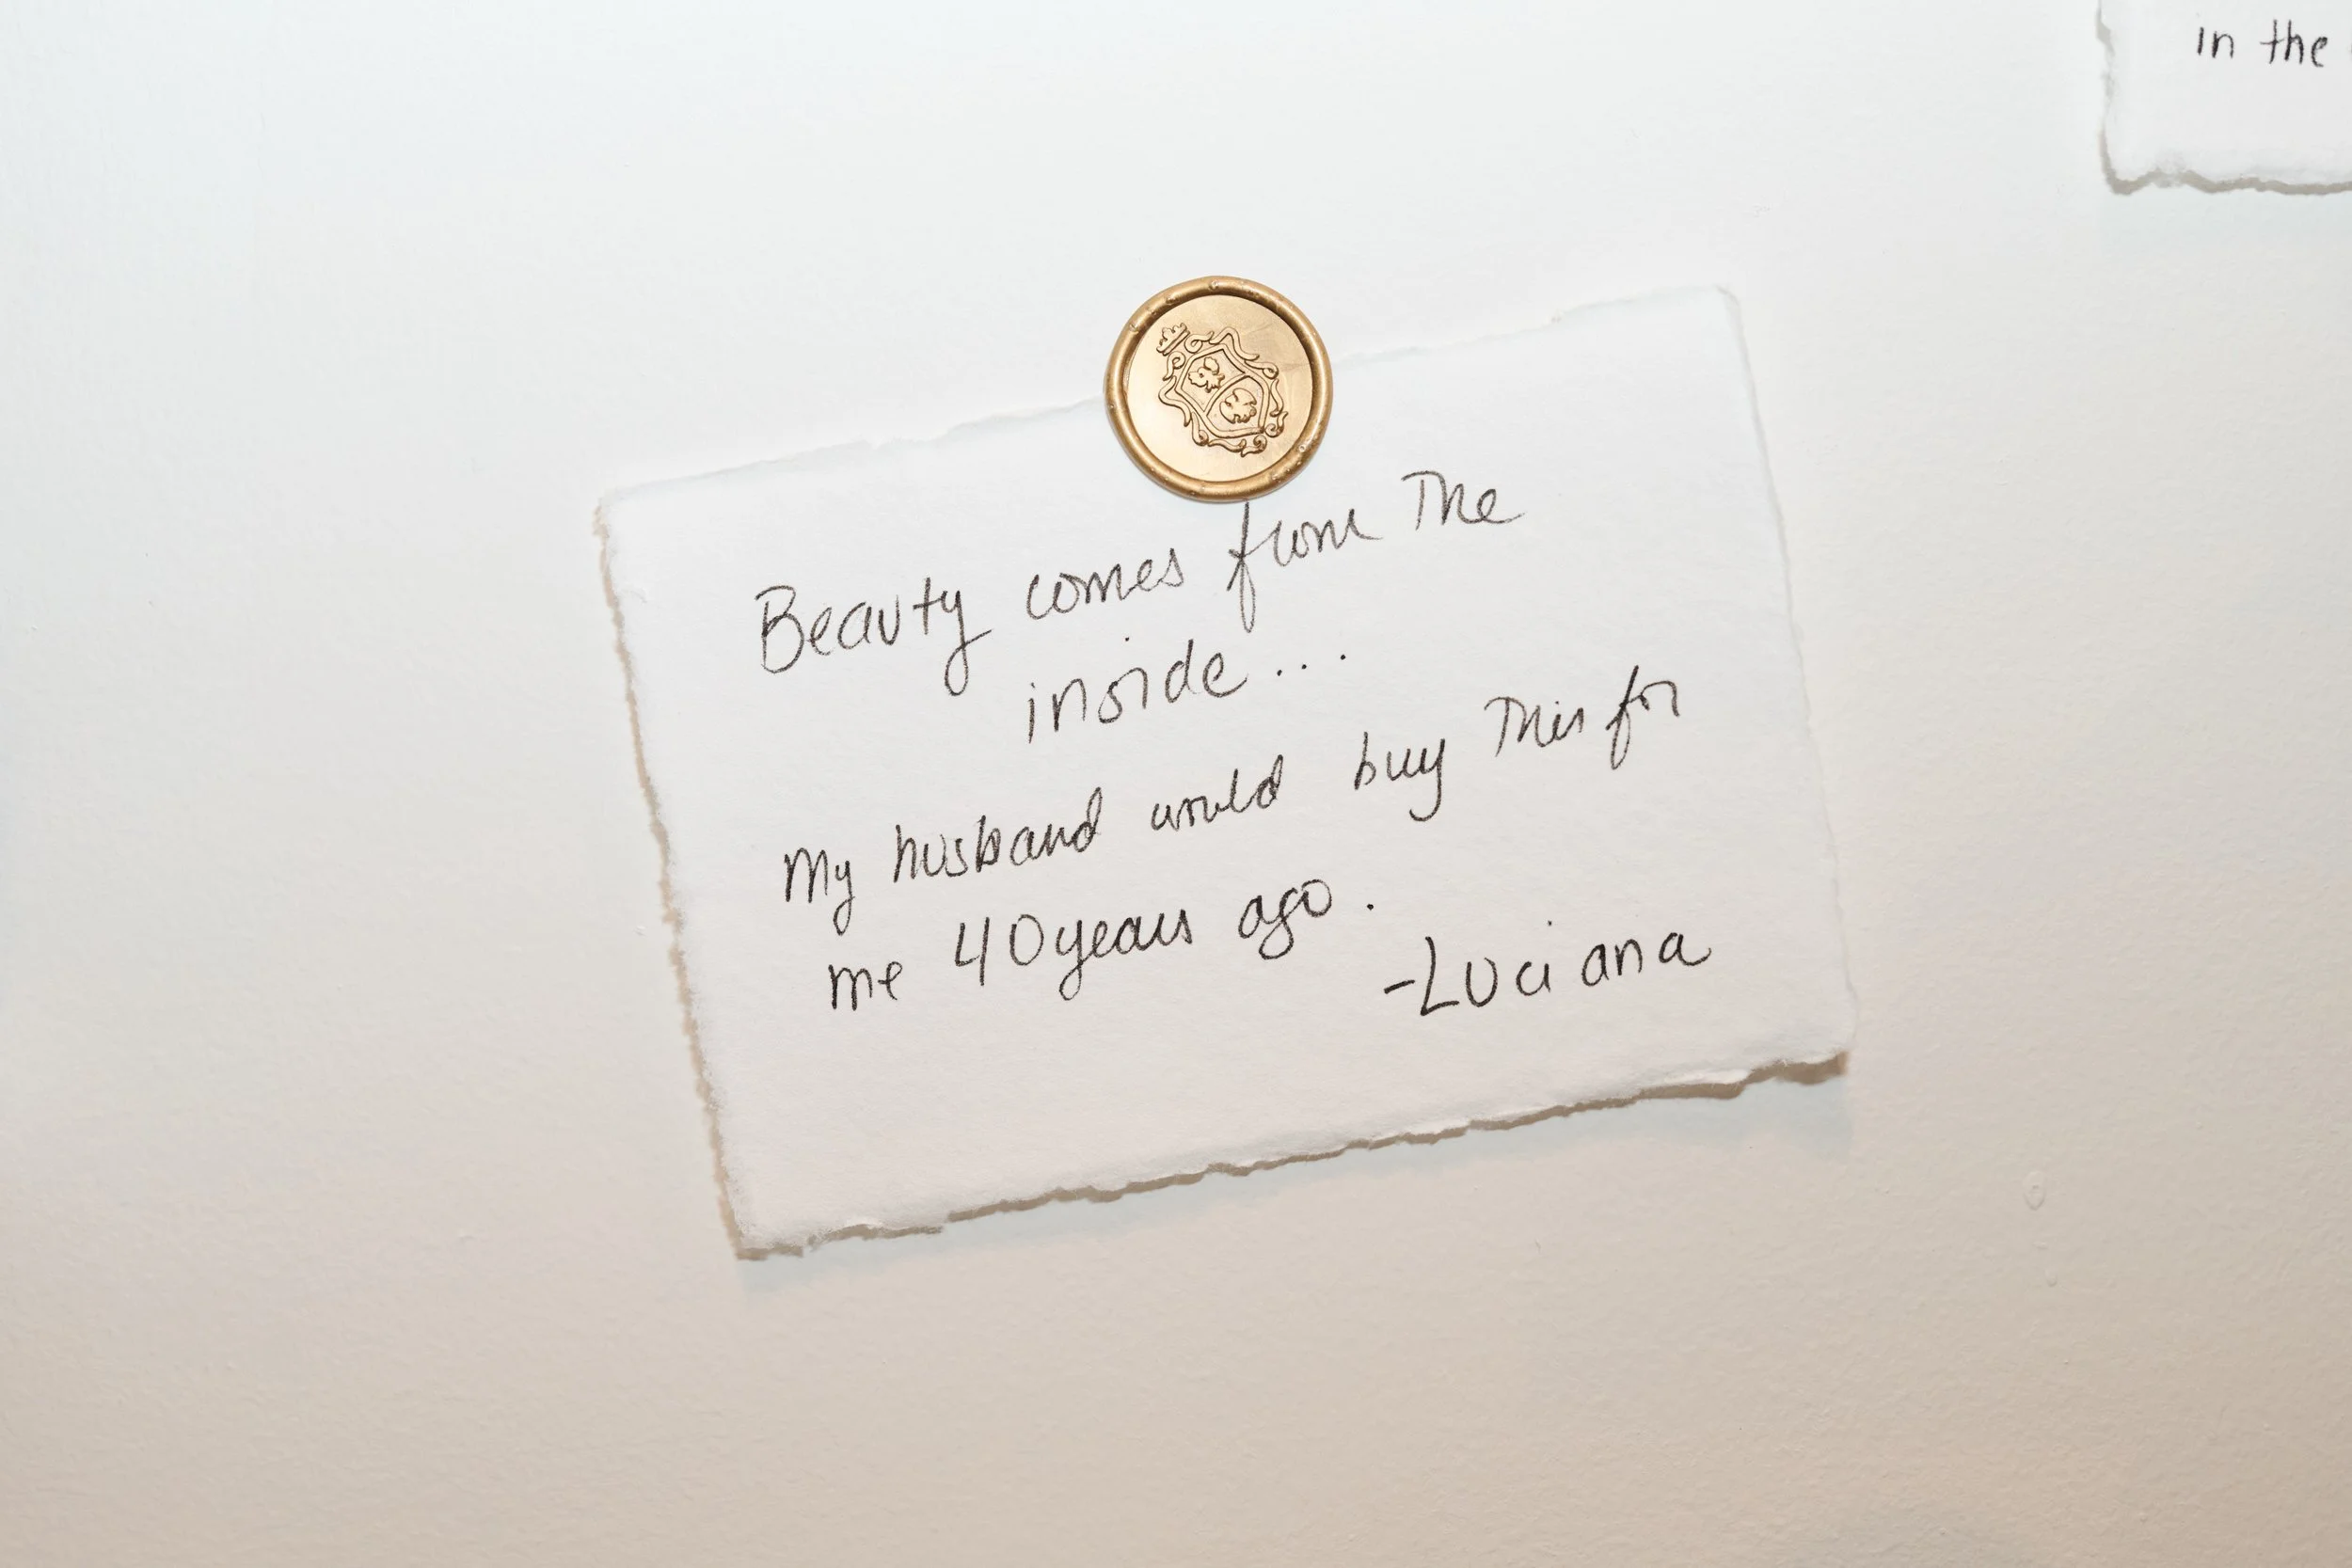 in the
Beauty comes from The
inside...
My husband would buy This for
me 40 years ago.
-Luciana